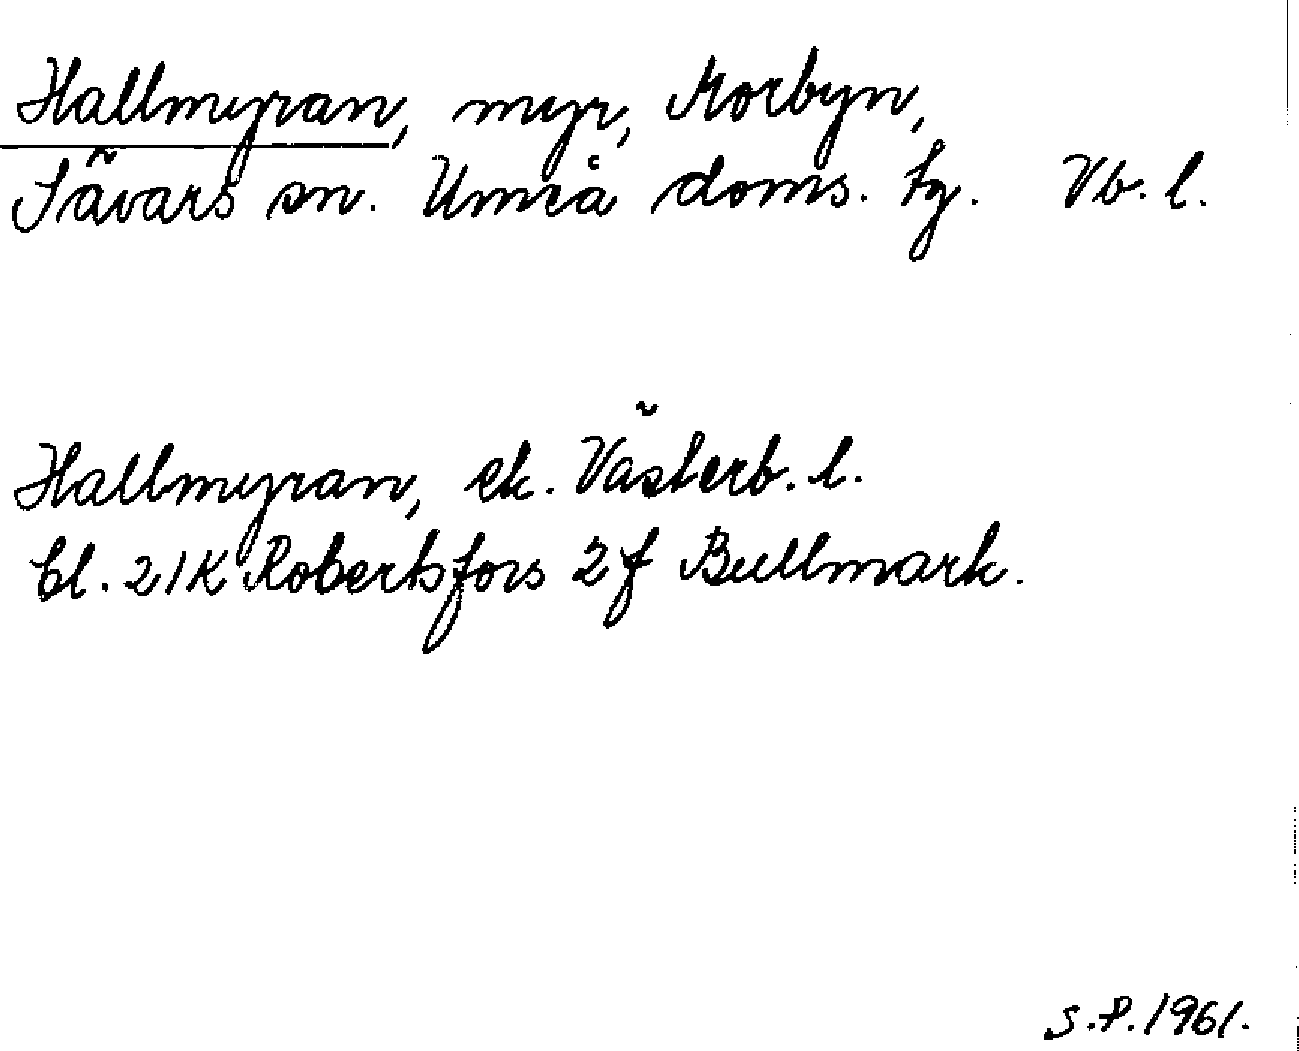 Hallmyran, myr, Morbyn,
Sävars sn. Umeå doms. tg. Vb. l.
Hallmyran, ek. Västerb. l.
bl. 21K Robertsfors 2f Bullmark.
S.P. 1961.